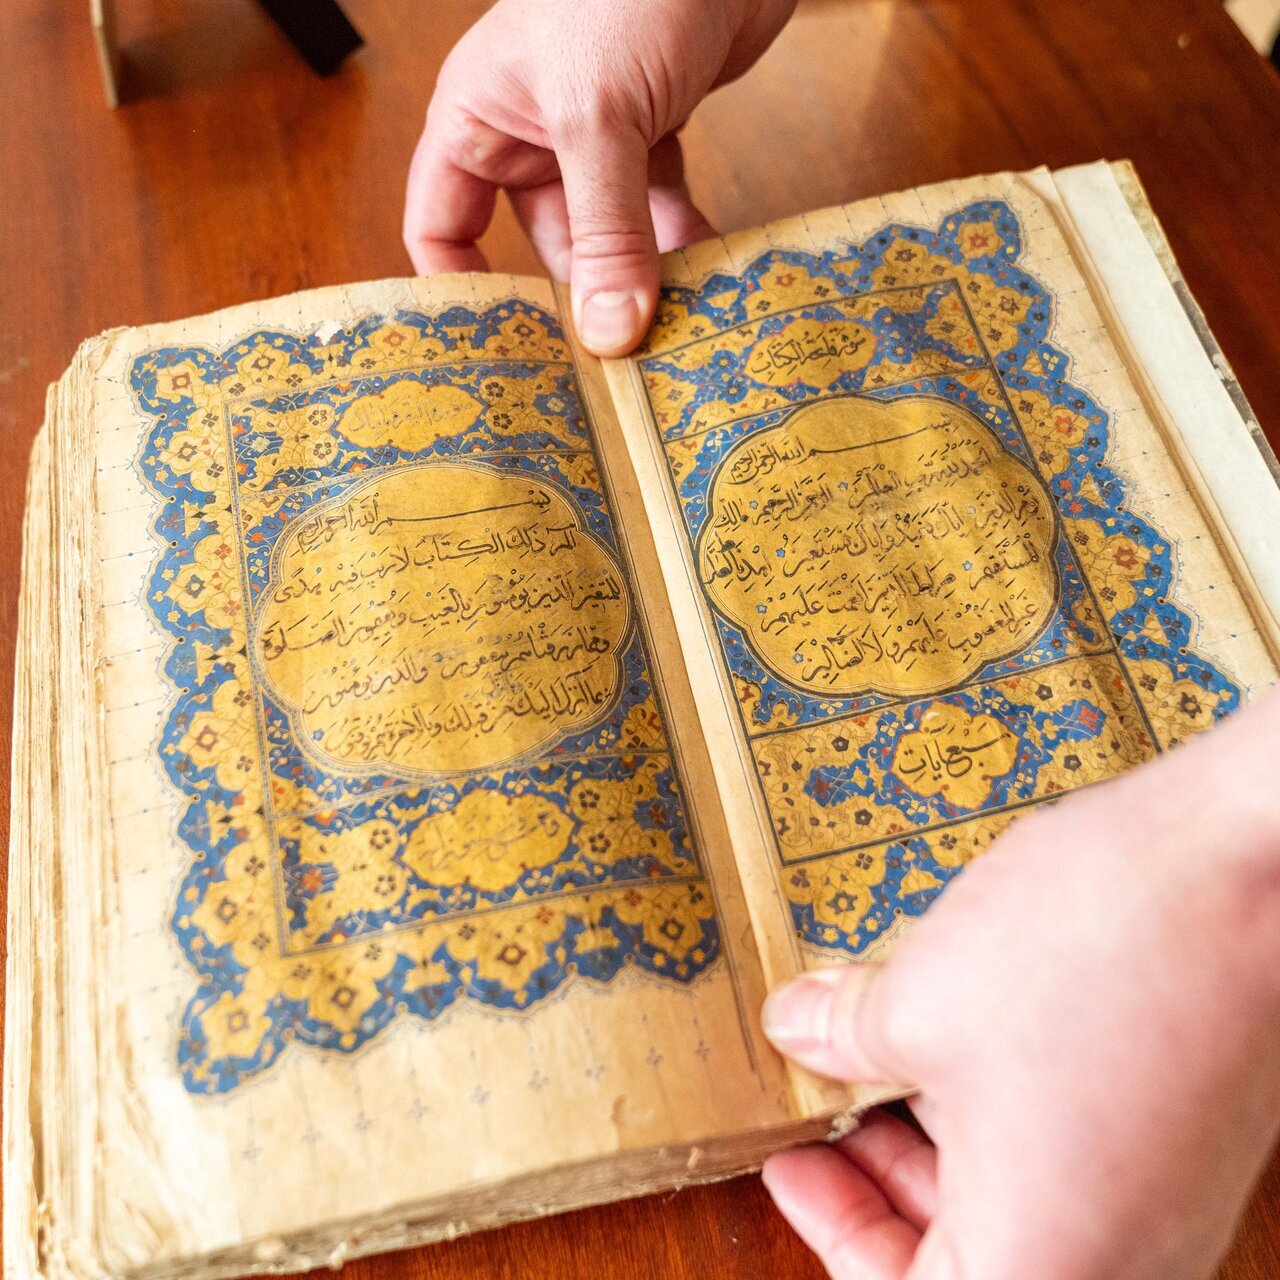 سورة فاتحة الكتاب
بسم الله الرحمن الرحيم
الحمد لله رب العالمين الرحمن الرحيم مالك
يوم الدين اياك نعبد واياك نستعين اهدنا الصراط
المستقيم صراط الذين انعمت عليهم
غير المغضوب عليهم ولا الضالين
سبع آيات
بسم الله الرحمن الرحيم
الم ذلك الكتاب لا ريب فيه هدى
للمتقين الذين يؤمنون بالغيب ويقيمون الصلوة
ومما رزقناهم ينفقون والذين يؤمنون
بما انزل اليك من قبلك وبالاخرة هم يوقنون